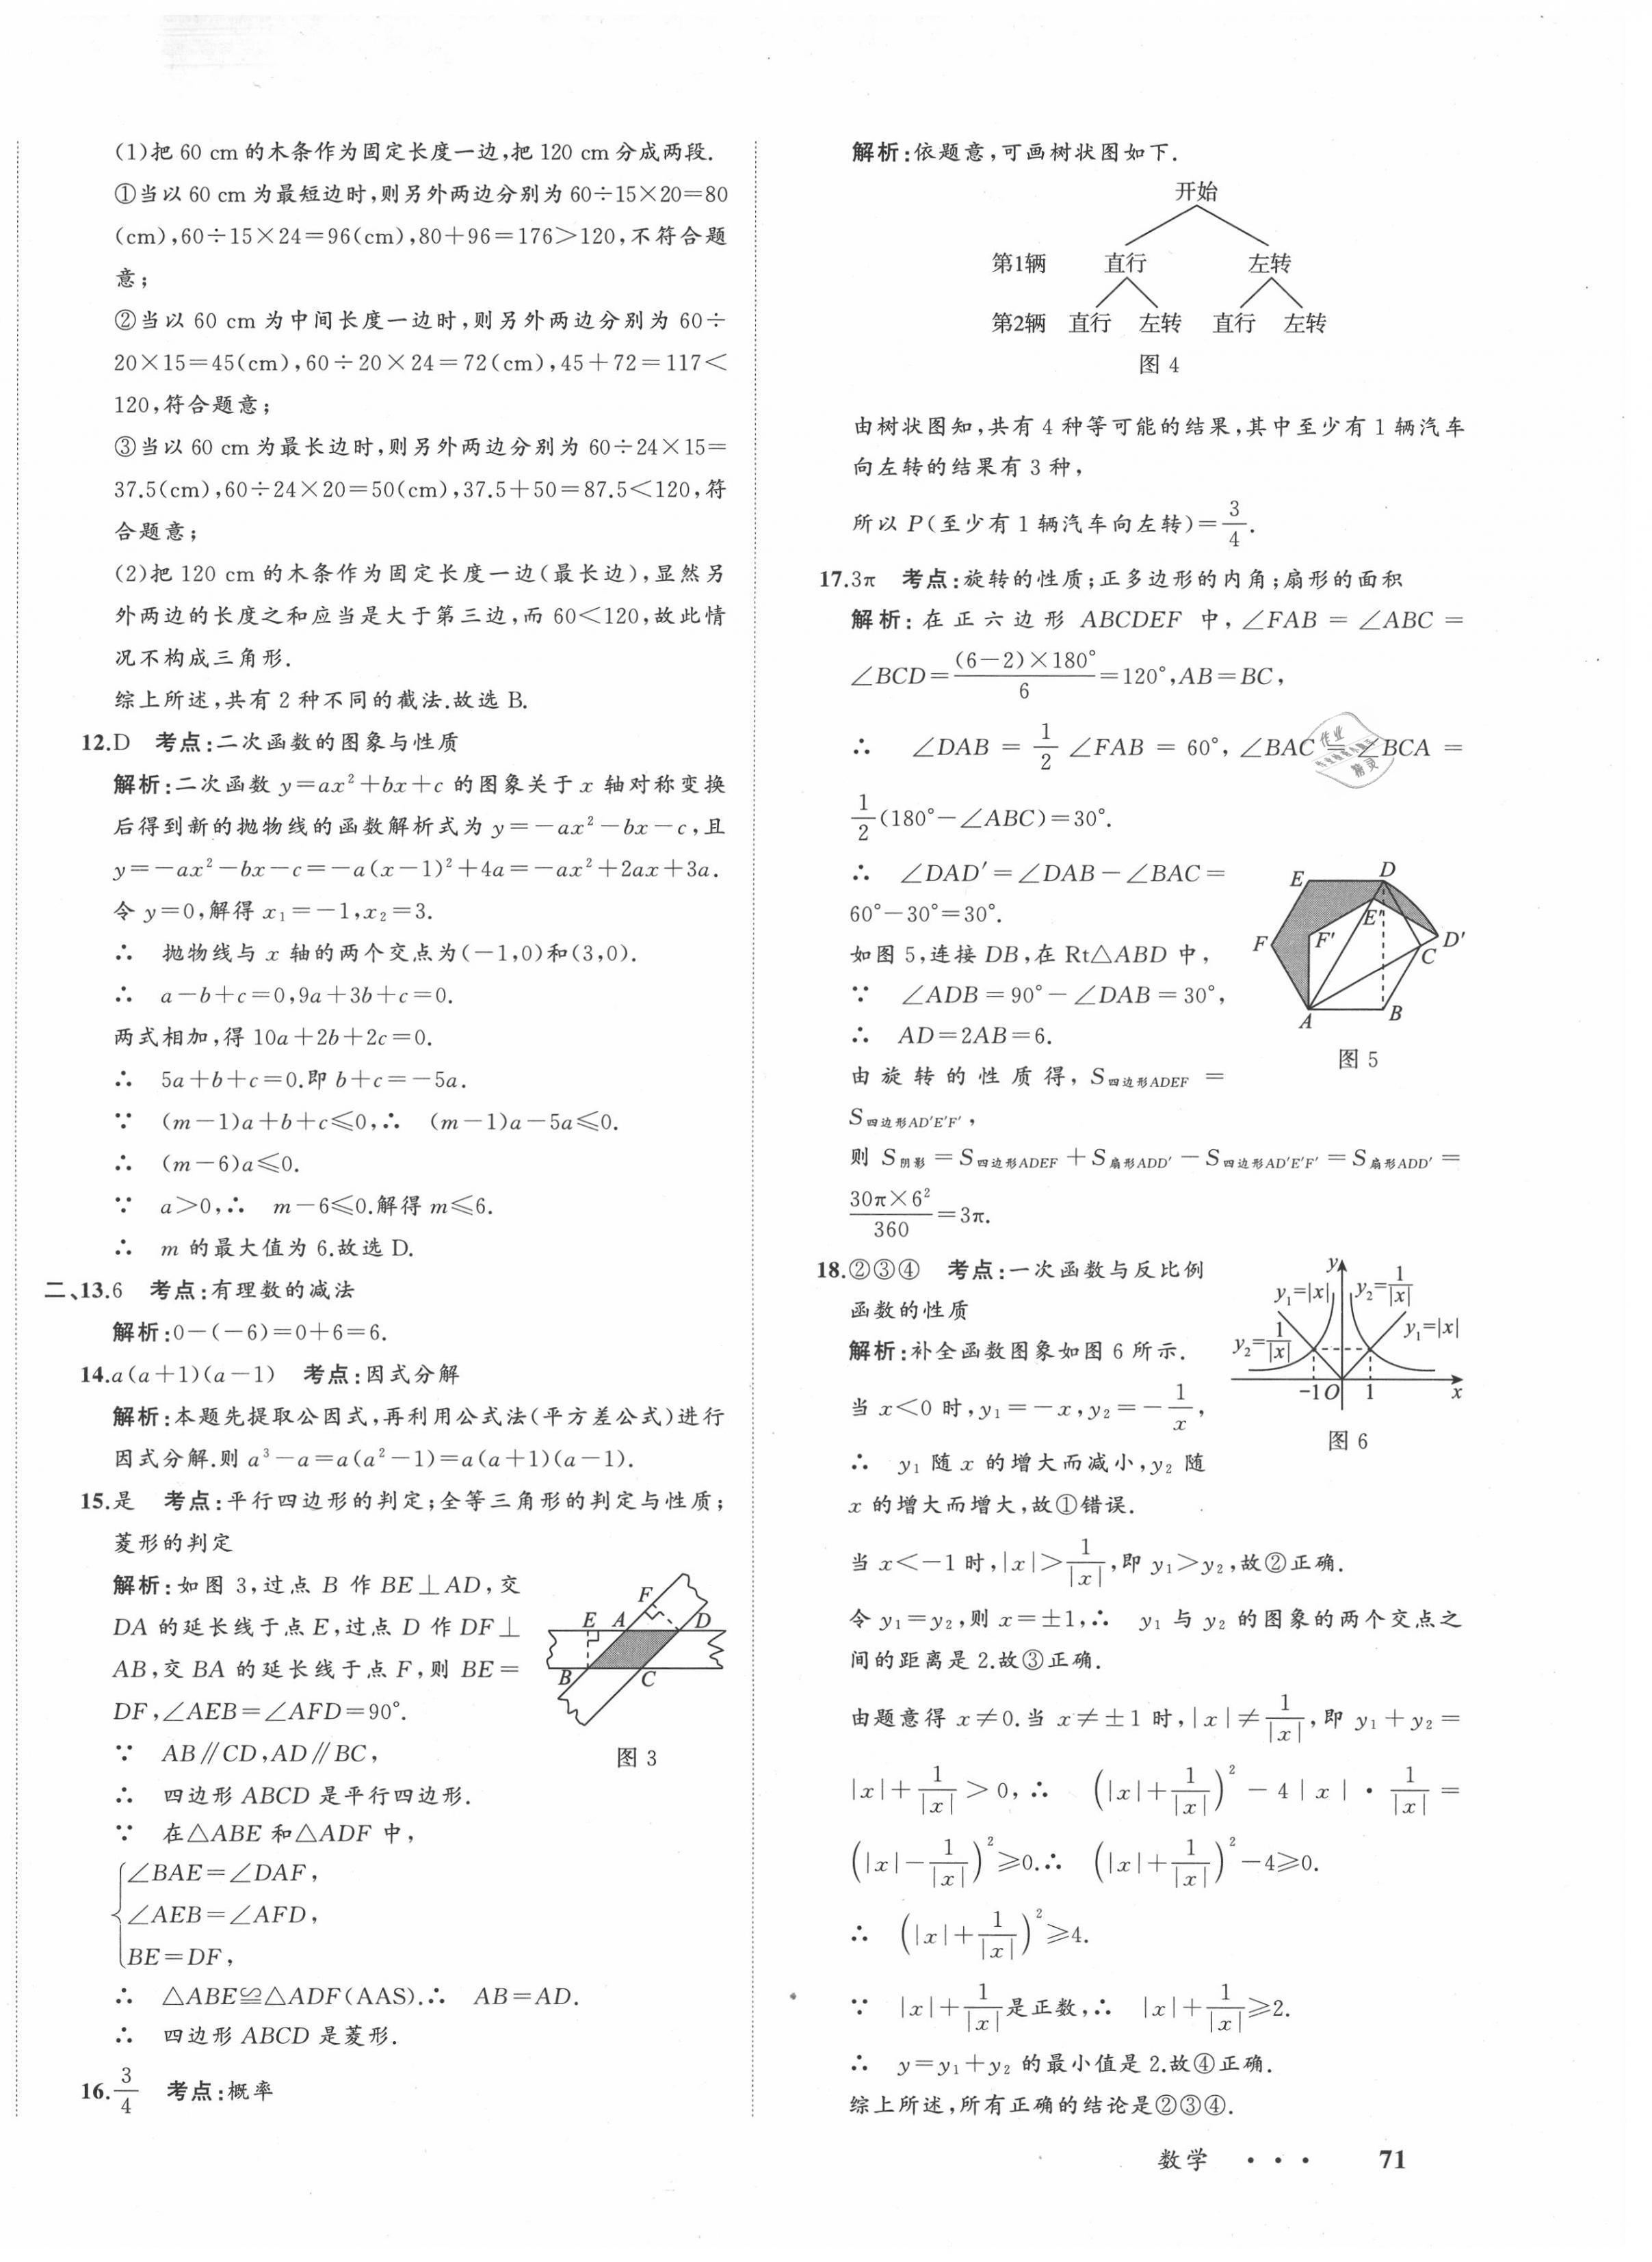 (1)把 60 cm 的木条作为固定长度一边,把 120 cm 分成两段.
①当以 60 cm 为最短边时,则另外两边分别为 60÷15×20=80
(cm),60÷15×24=96(cm),80+96=176>120,不符合题
意;
②当以 60 cm 为中间长度一边时,则另外两边分别为 60÷
20×15=45(cm),60÷20×24=72(cm),45+72=117<
120,符合题意;
③当以 60 cm 为最长边时,则另外两边分别为 60÷24×15=
37.5(cm),60÷24×20=50(cm),37.5+50=87.5<120,符
合题意;
(2)把 120 cm 的木条作为固定长度一边(最长边),显然另
外两边的长度之和应当是大于第三边,而 60<120,故此情
况不构成三角形.
综上所述,共有 2 种不同的截法.故选 B.
12.D 考点:二次函数的图象与性质
解析:二次函数 y=ax²+bx+c 的图象关于 x 轴对称变换
后得到新的抛物线的函数解析式为 y=-ax²-bx-c,且
y=-ax²-bx-c=-a(x-1)²+4a=-ax²+2ax+3a.
令 y=0,解得 x₁=-1,x₂=3.
∴ 抛物线与 x 轴的两个交点为(-1,0)和(3,0).
∴ a-b+c=0,9a+3b+c=0.
两式相加,得 10a+2b+2c=0.
∴ 5a+b+c=0.即 b+c=-5a.
∵ (m-1)a+b+c≤0,∴ (m-1)a-5a≤0.
∴ (m-6)a≤0.
∵ a>0,∴ m-6≤0.解得 m≤6.
∴ m 的最大值为 6.故选 D.
二、13.6 考点:有理数的减法
解析:0-(-6)=0+6=6.
14.a(a+1)(a-1) 考点:因式分解
解析:本题先提取公因式,再利用公式法(平方差公式)进行
因式分解.则 a³-a=a(a²-1)=a(a+1)(a-1).
15.是 考点:平行四边形的判定;全等三角形的判定与性质;
菱形的判定
解析:如图 3,过点 B 作 BE⊥AD,交
DA 的延长线于点 E,过点 D 作 DF⊥
AB,交 BA 的延长线于点 F,则 BE=
DF,∠AEB=∠AFD=90°.
∵ AB∥CD,AD∥BC,
∴ 四边形 ABCD 是平行四边形.
∵ 在△ABE 和△ADF 中,
∠BAE=∠DAF,
∠AEB=∠AFD,
BE=DF,
∴ △ABE≌△ADF(AAS).∴ AB=AD.
∴ 四边形 ABCD 是菱形.
F
E A D
B C
图 3
16.3/4 考点:概率
解析:依题意,可画树状图如下.
开始
第1辆 直行 左转
第2辆 直行 左转 直行 左转
图 4
由树状图知,共有 4 种等可能的结果,其中至少有 1 辆汽车
向左转的结果有 3 种,
所以 P(至少有 1 辆汽车向左转)=3/4.
17.3π 考点:旋转的性质;正多边形的内角;扇形的面积
解析:在正六边形 ABCDEF 中,∠FAB=∠ABC=
∠BCD=(6-2)×180°/6=120°,AB=BC,
∴ ∠DAB=1/2∠FAB=60°,∠BAC=∠BCA=
1/2(180°-∠ABC)=30°.
∴ ∠DAD′=∠DAB-∠BAC=
60°-30°=30°.
如图 5,连接 DB,在 Rt△ABD 中,
∵ ∠ADB=90°-∠DAB=30°,
∴ AD=2AB=6.
由旋转的性质得,S四边形ADEF=
S四边形AD′E′F′,
则 S阴影=S四边形ADEF+S扇形ADD′-S四边形AD′E′F′=S扇形ADD′=
30π×6²/360=3π.
E D
E′
F F′ D′
C
A B
图 5
18.②③④ 考点:一次函数与反比例
函数的性质
解析:补全函数图象如图 6 所示.
当 x<0 时,y₁=-x,y₂=-1/x,
∴ y₁ 随 x 的增大而减小,y₂ 随
x 的增大而增大,故①错误.
y
y₁=|x| y₂=1/|x|
y₂=1/|x| y₁=|x|
-1 O 1 x
图 6
当 x<-1 时,|x|>1/|x|,即 y₁>y₂,故②正确.
令 y₁=y₂,则 x=±1,∴ y₁ 与 y₂ 的图象的两个交点之
间的距离是 2.故③正确.
由题意得 x≠0.当 x≠±1 时,|x|≠1/|x|,即 y₁+y₂=
|x|+1/|x|>0,∴ (|x|+1/|x|)²-4|x|·1/|x|=
(|x|-1/|x|)²≥0.∴ (|x|+1/|x|)²-4≥0.
∴ (|x|+1/|x|)²≥4.
∵ |x|+1/|x|是正数,∴ |x|+1/|x|≥2.
∴ y=y₁+y₂ 的最小值是 2.故④正确.
综上所述,所有正确的结论是②③④.
数学 ··· 71
作业
精灵